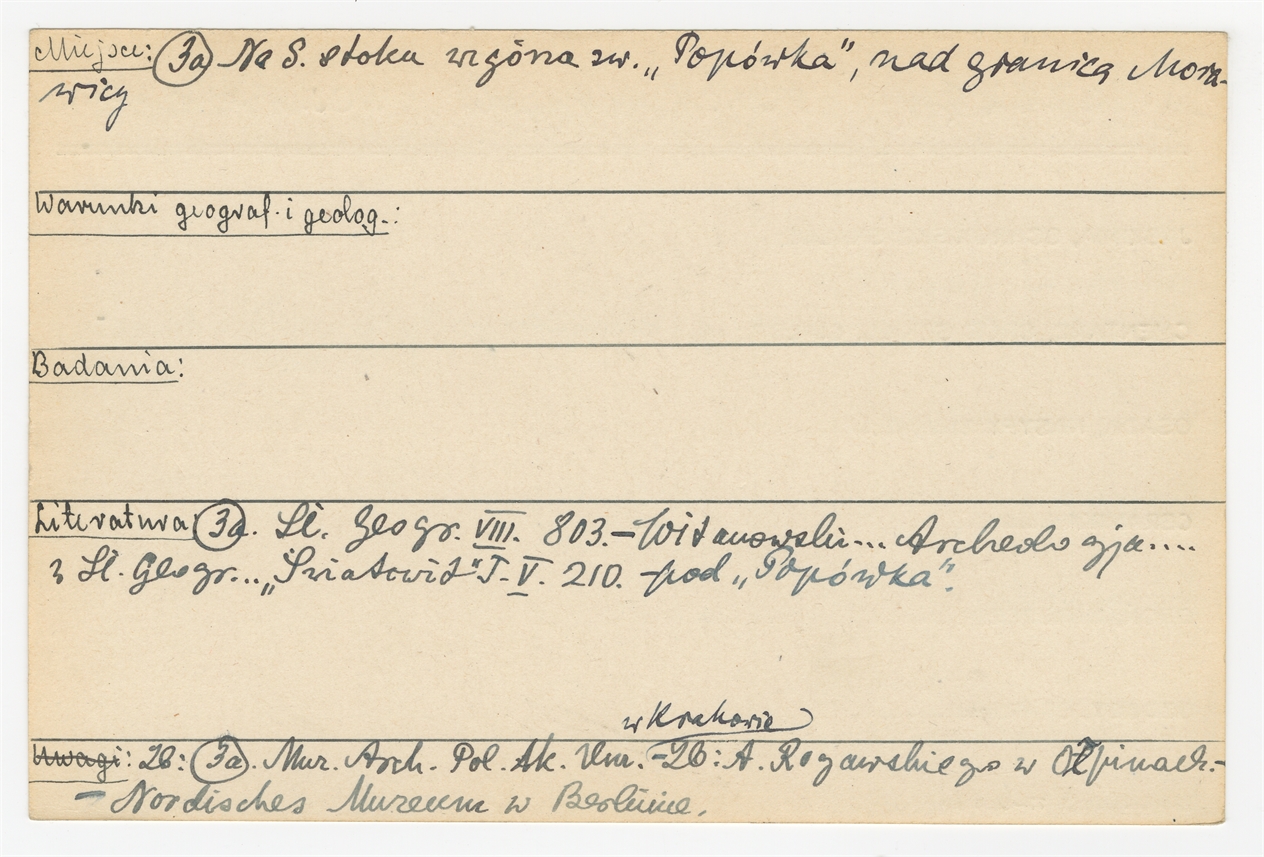 Miejsce: 3a Na S. stoku wzgórza zw. „Popówka", nad granicą Mora-
wicy
Warunki geograf. i geolog.:
Badania:
Literatura: 3a. Sł. Geogr. VIII. 803. – Witanowski... Archeologja....
z Sł. Geogr... „Światowit" T. V. 210. – pod „Popówka".
w Krakowie
Uwagi: Zb: 3a. Muz. Arch. Pol. Ak. Um. – Zb: A. Rogawskiego w Ołpinach. –
– Nordisches Muzeum w Berlinie.